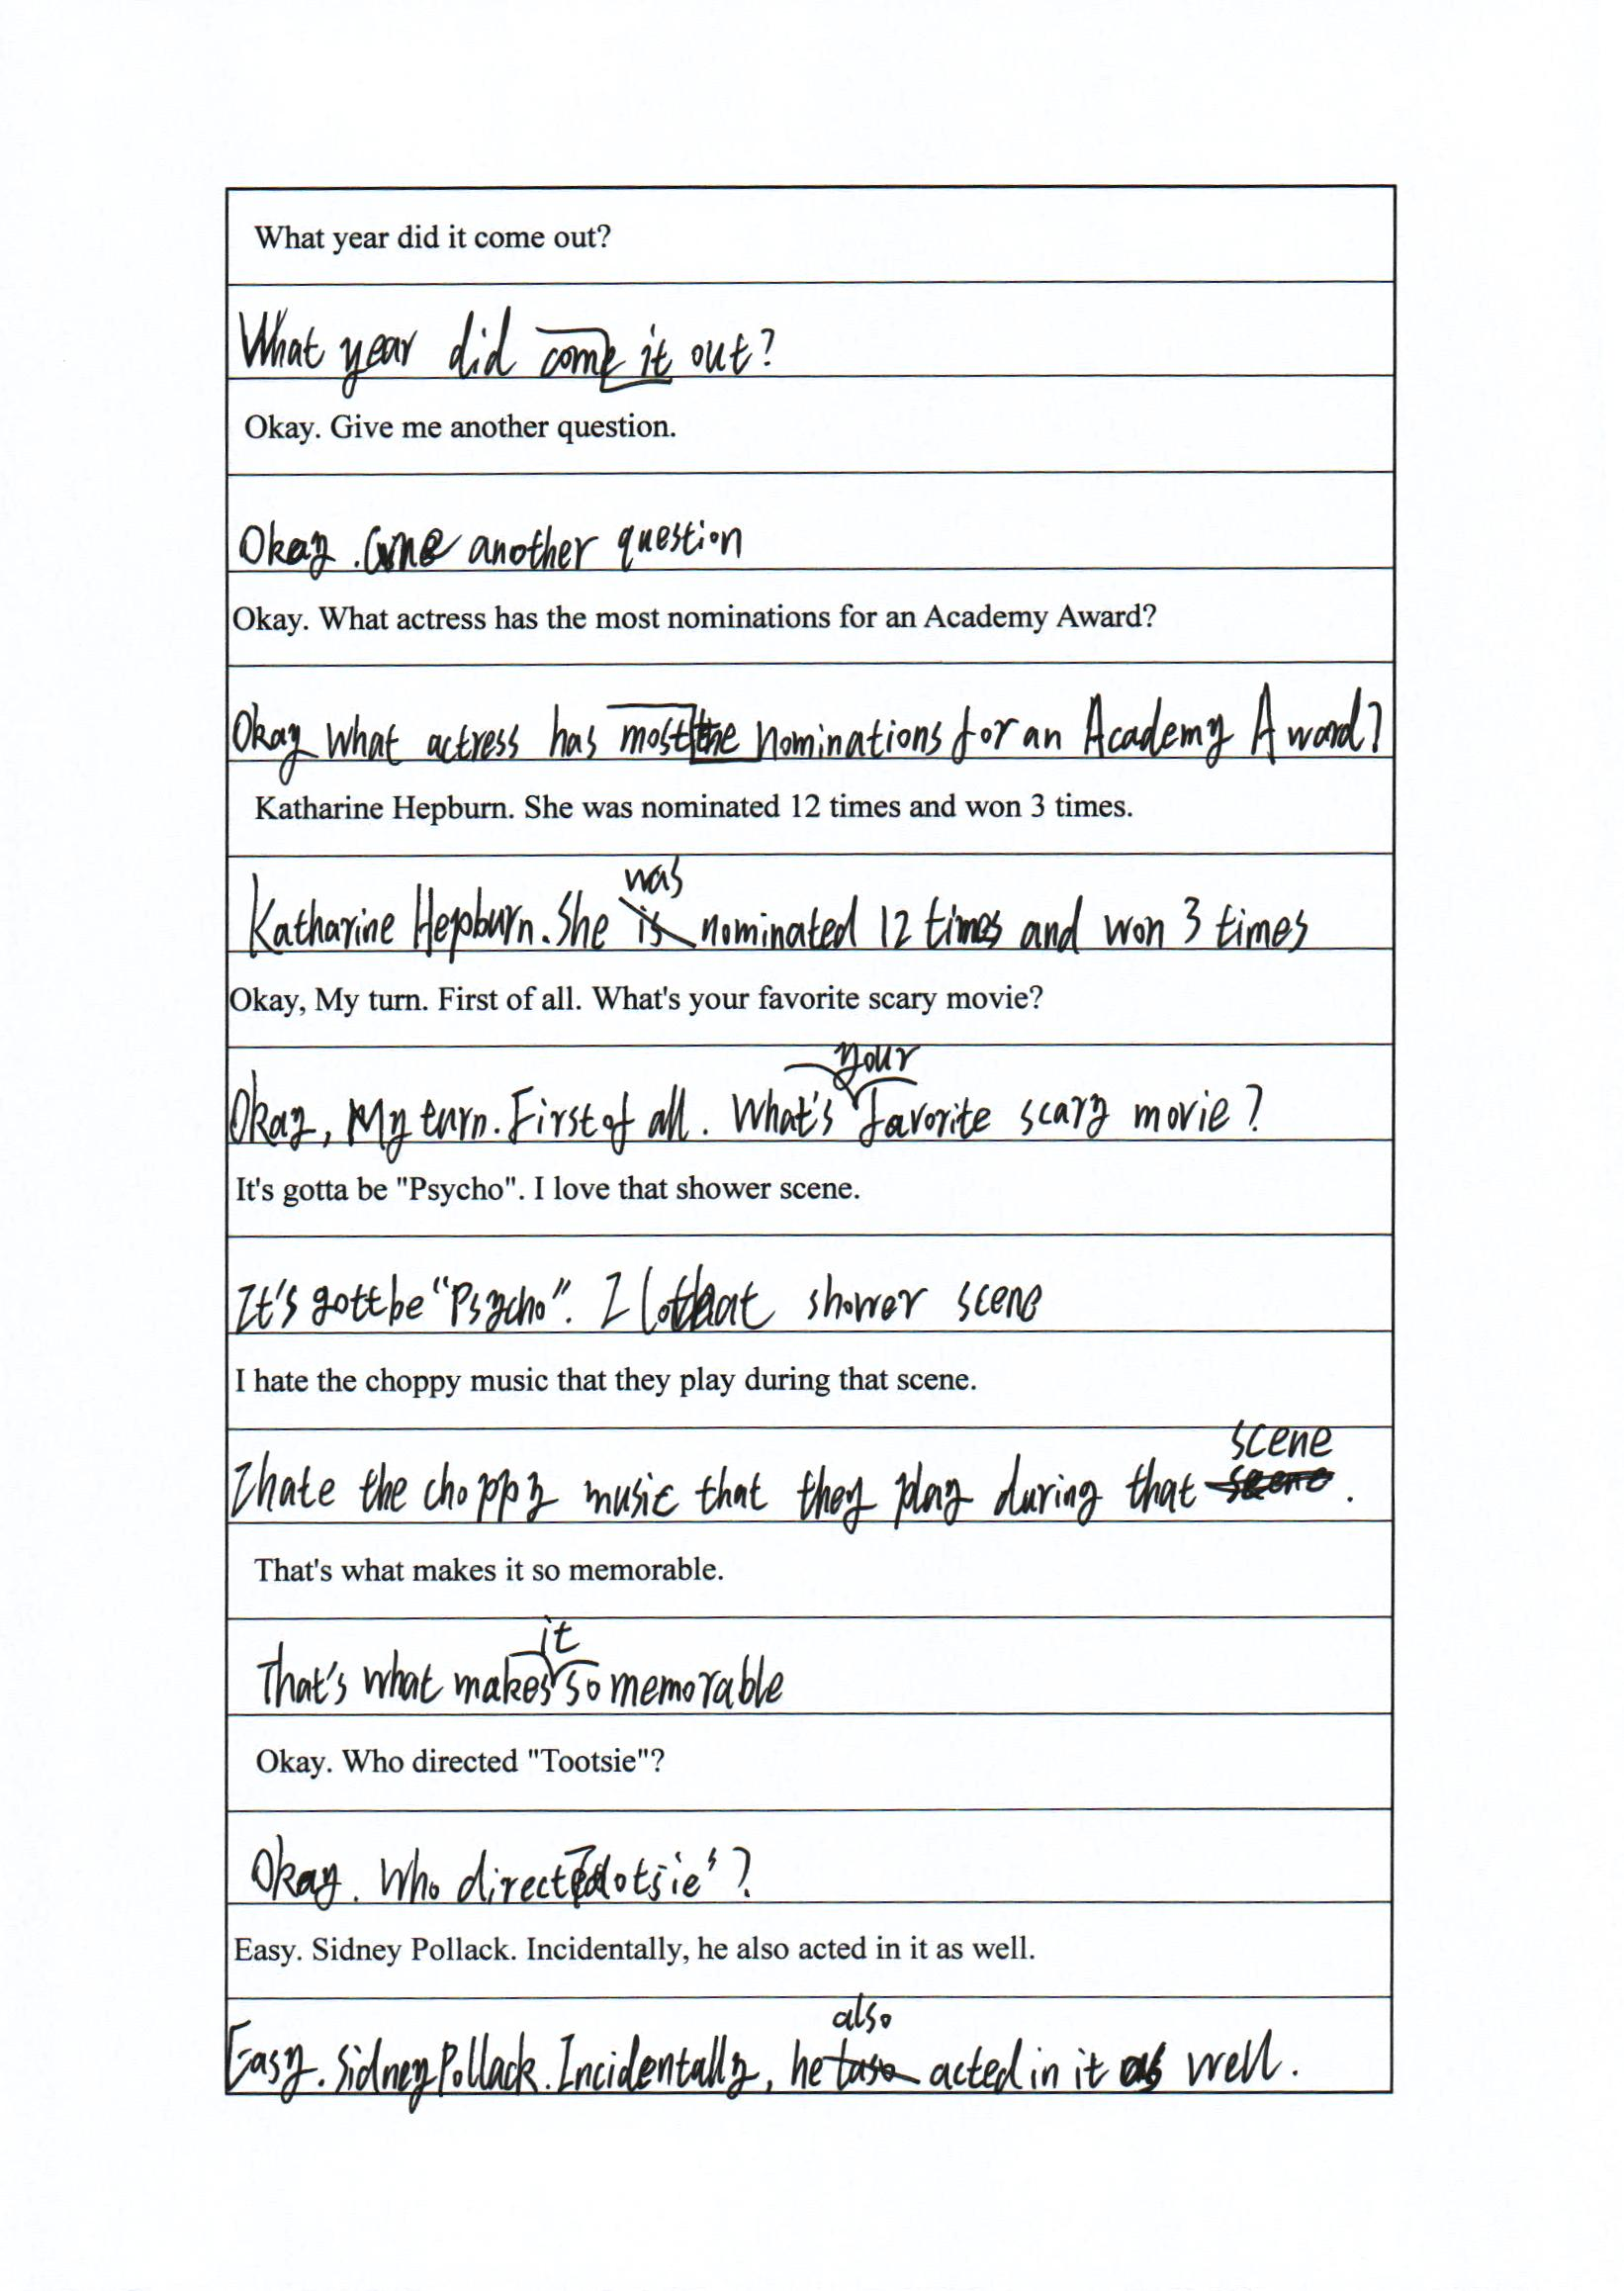 What year did it come out?
What year did it come out?
Okay. Give me another question.
Okay. another question
Okay. What actress has the most nominations for an Academy Award?
Okay what actress has the most nominations for an Academy Award?
Katharine Hepburn. She was nominated 12 times and won 3 times.
Katharine Hepburn. She was nominated 12 times and won 3 times
Okay, My turn. First of all. What's your favorite scary movie?
Okay, My turn. First of all. What's your favorite scary movie?
It's gotta be "Psycho". I love that shower scene.
It's gott be "Psycho". I that shower scene
I hate the choppy music that they play during that scene.
I hate the choppy music that they play during that scene.
That's what makes it so memorable.
That's what makes it so memorable
Okay. Who directed "Tootsie"?
Okay. Who ?
Easy. Sidney Pollack. Incidentally, he also acted in it as well.
Easy. Sidney Pollack. Incidentally, he also acted in it as well.